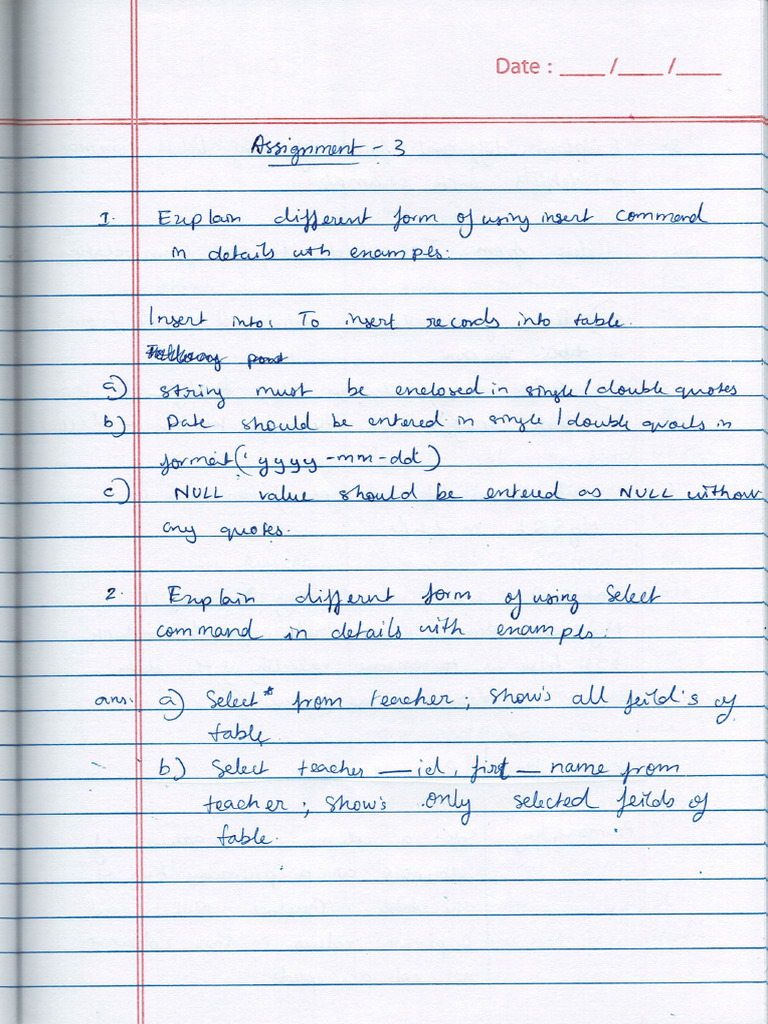 Date : ___ /___ /___
Assignment - 3
1. Explain different form of using insert command
in details with exampls.
Insert into: To insert records into table.
a) string must be enclosed in single / double quotes
b) Date should be entered in single / double quotes in
format ('yyyy-mm-dd')
c) NULL value should be entered as NULL without
any quotes.
2. Explain different form of using Select
command in details with exampls.
ans. a) Select * from teacher; show's all feild's of
table
b) Select teacher _ id, first _ name from
teacher; show's only selected feilds of
table.